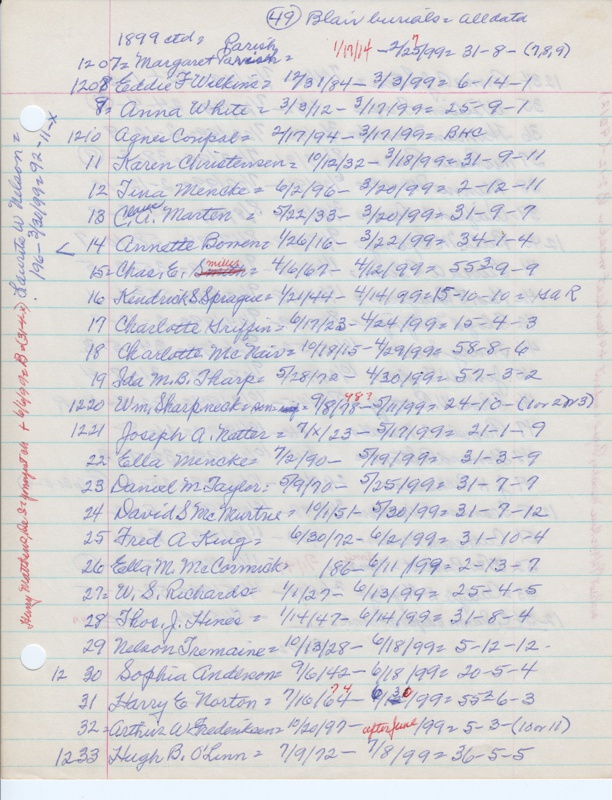 (49) Blair burials = all data
1899 ctd =
Parish
1207 = Margaret = 1/19/14 - 2/25?/99 = 31-8-(7,8,9)
1208 Eddie F Wilkins = 12/31/84 - 3/3/99 = 6-14-1
9 = Anna White = 3/3/12 - 3/17/99 = 25-9-1
1210 Agnes Compal = 2/17/94 - 3/17/99 = BHC
11 Karen Christensen = 10/12/32 - 3/18/99 = 31-9-11
12 Tina Mencke = 6/2/96 - 3/20/99 = 2-12-11
13 C. A. Marton = 5/22/33 - 3/20/99 = 31-9-7
14 Annette Bowen = 1/26/16 - 3/22/99 = 34-1-4
15 = Chas. E. Miller = 4/6/67 - 4/12/99 = 55²-9-9
16 Kendrick S. Sprague = 1/21/44 - 4/14/99 = 15-10-10 = GAR
17 Charlotte Griffin = 6/17/23 - 4/24/99 = 15-4-3
18 Charlotte McNair = 10/18/15 - 4/29/99 = 58-8-6
19 Ida M. B. Tharp = 5/28/72 - 4/30/99 = 57-3-2
1220 Wm. Sharpneck = 9/8/78 - 5/11/99 = 24-10-(1 or 2 or 3)
48?
1221 Joseph A. Natter = 7/x/23 - 5/17/99 = 21-1-9
22 Ella Mencke = 7/2/90 - 5/19/99 = 31-3-9
23 Daniel M Taylor = 5/9/70 - 5/25/99 = 31-7-7
24 David S McMurtrie = 10/1/51 - 5/30/99 = 31-7-12
25 Fred A King = 6/30/72 - 6/2/99 = 31-10-4
26 Ella M. McCormick = 186 - 6/11/99 = 2-13-7
27 = W. S. Richards = 1/1/27 - 6/13/99 = 25-4-5
28 Thos. J. Hines = 1/14/47 - 6/14/99 = 31-8-4
29 Nelson Tremaine = 10/13/28 - 6/18/99 = 5-12-12
12 30 Sophia Anderson = 9/6/42 - 6/18/99 = 20-5-4
31 Harry E Norton = 7/16/64 - 6/30/99 = 55²-6-3
74
32 = Arthur W. Frederiksen = 10/20/97 - after June/99 = 5-3-(10 or 11)
1233 Hugh B. O'Linn = 7/9/72 - 7/8/99 = 36-5-5
Laurate W Nelson =
196 - 3/30/99 = 92-11-x
Henry Matthews, + 6/6/99 = B